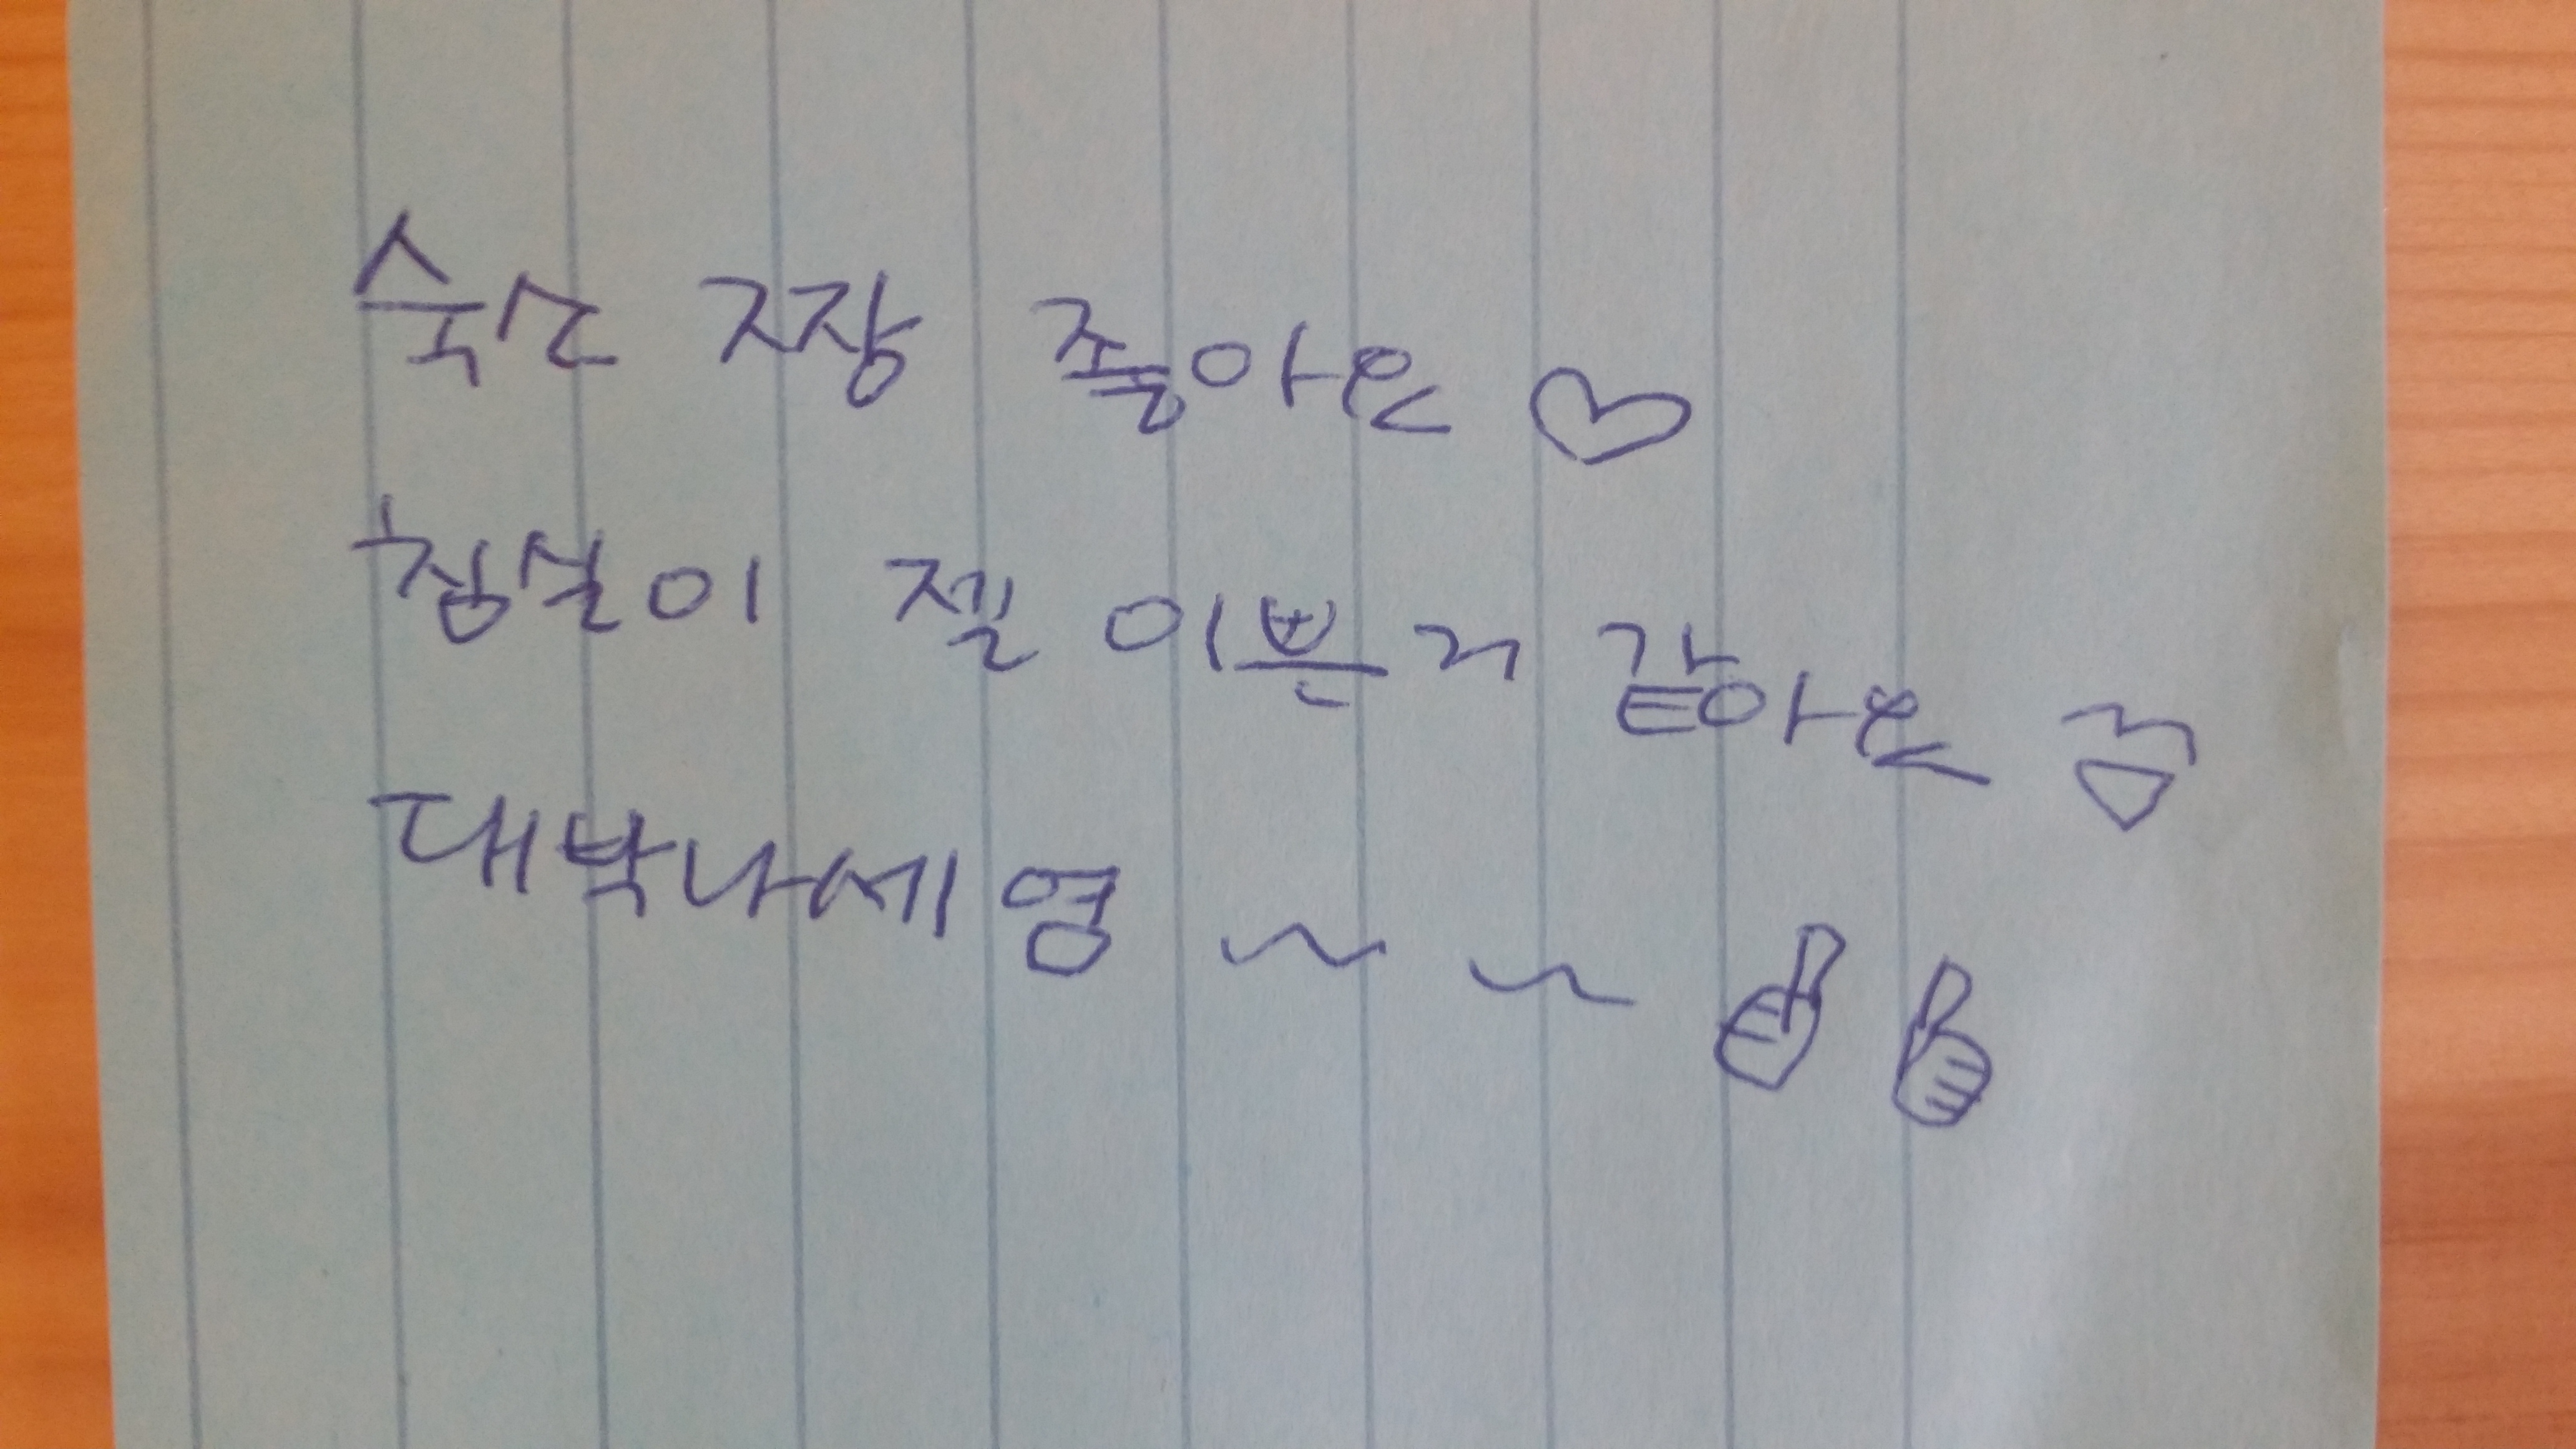 숙소 짱 좋아요 ♡
침실이 젤 이쁜거 같아요
대박나세영 ~ ~